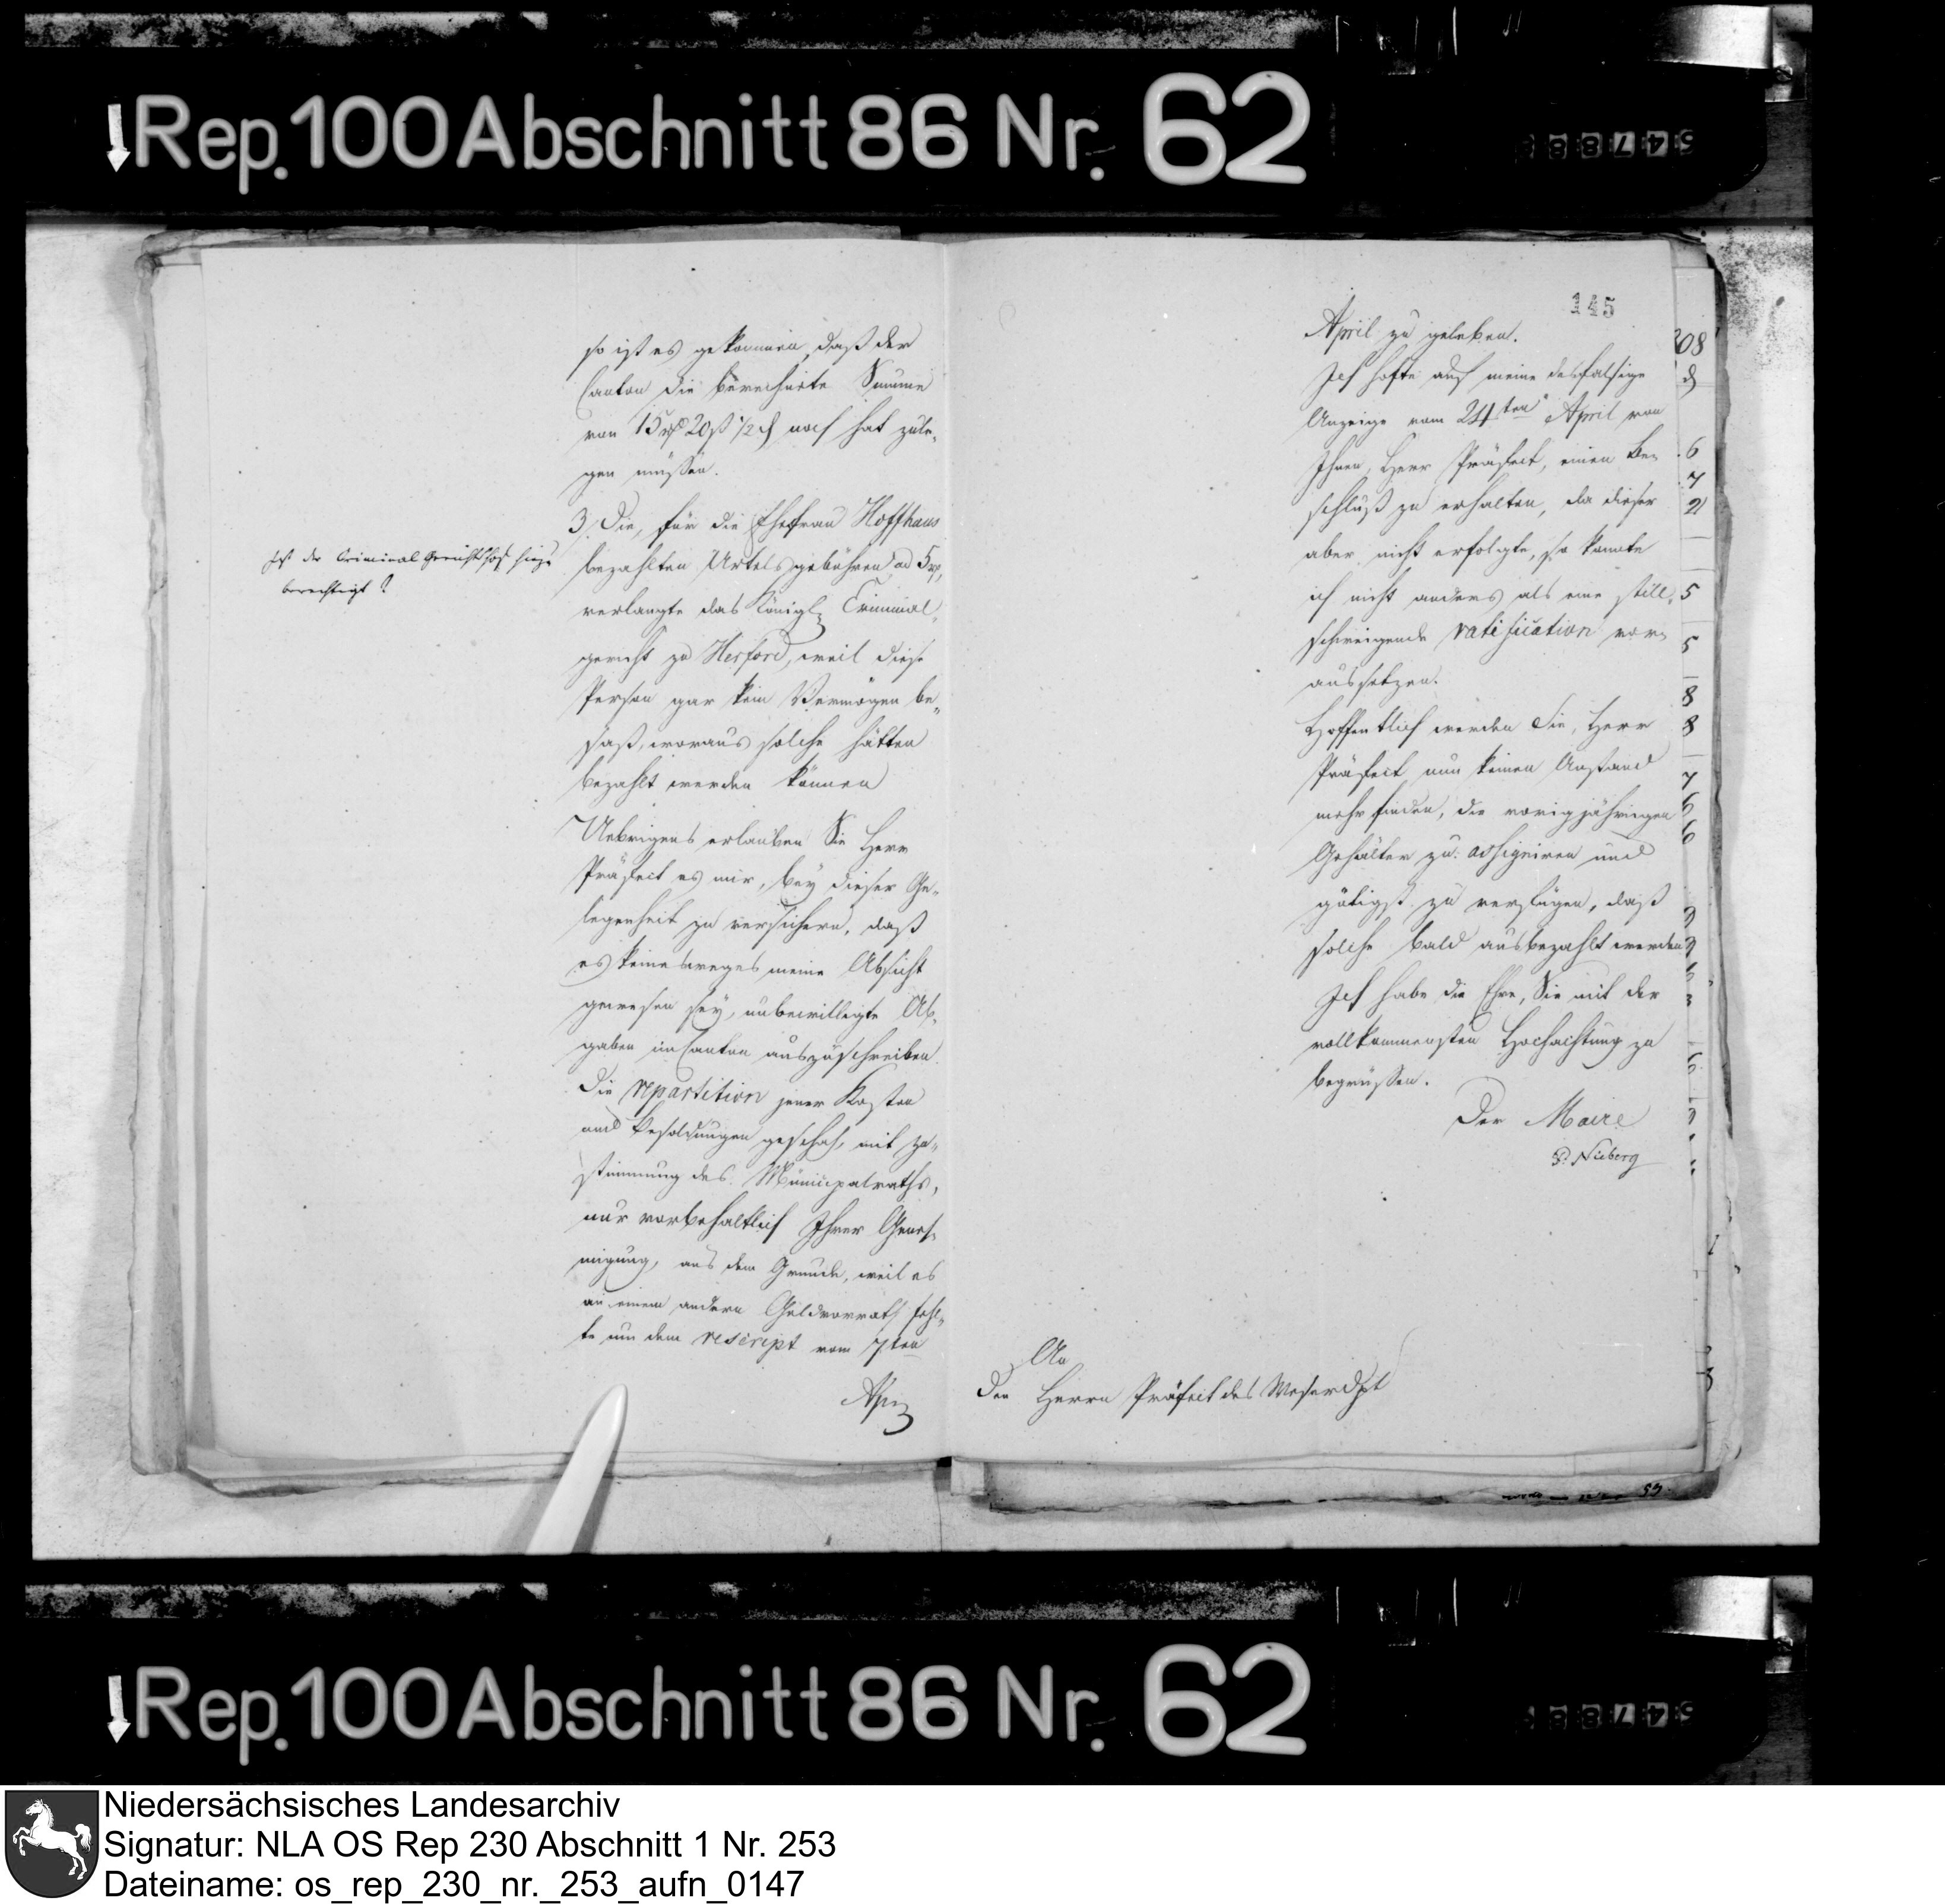 Rep. 100 Abschnitt 86 Nr. 62
so ist es gekommen, daß der
Canton die berechnete Summe
von 15 rt 20 ß 1/2 d noch hat zule-
gen müssen.
3, Die, für die Ehefrau Hoffhaus
bezahlten Urtelsgebühren ad 5 rt,
verlangte das Königl. Criminal-
gericht zu Herford, weil diese
Person gar kein Vermögen be-
saß, woraus solche hätten
bezahlt werden können
Uebrigens erlauben Sie Herr
Präfect es mir, bey dieser Ge-
legenheit zu versichern, daß
es keinesweges meine Absicht
gewesen sey, unbewilligte Ab-
gaben im Canton auszuschreiben.
Die repartition jener Kosten
und Besoldungen geschah, mit Zu-
stimmung des Municipalraths,
nur vorbehaltlich Ihrer Geneh-
migung, aus dem Grunde, weil es
an einem andern Geldvorrath fehl-
te um dem rescript vom 7ten
Ist der Criminal Gerichtshof hiezu
berechtigt?
145
April zu geleben.
Ich hofte auf meine desfalsige
Anzeige vom 24ten April von
Ihnen, Herr Präfect, einen Be-
schluß zu erhalten, da dieser
aber nicht erfolgte, so konnte
ich nicht anders als eine still-
schweigende ratification vor-
aussetzen.
Hoffentlich werden Sie, Herr
Präfect nun keinen Anstand
mehr finden, die vorigjährigen
Gehälter zu assigniren und
gütigst zu verfügen, daß
solche bald ausbezahlt werden
Ich habe die Ehre, Sie mit der
vollkommensten Hochachtung zu
begrüssen.
Der Maire
Nieberg
An
den Herrn Präfect des Weser Dpt
208
6
7
2
5
5
8
8
7
6
6
Rep. 100 Abschnitt 86 Nr. 62
Niedersächsisches Landesarchiv
Signatur: NLA OS Rep 230 Abschnitt 1 Nr. 253
Dateiname: os_rep_230_nr._253_aufn_0147